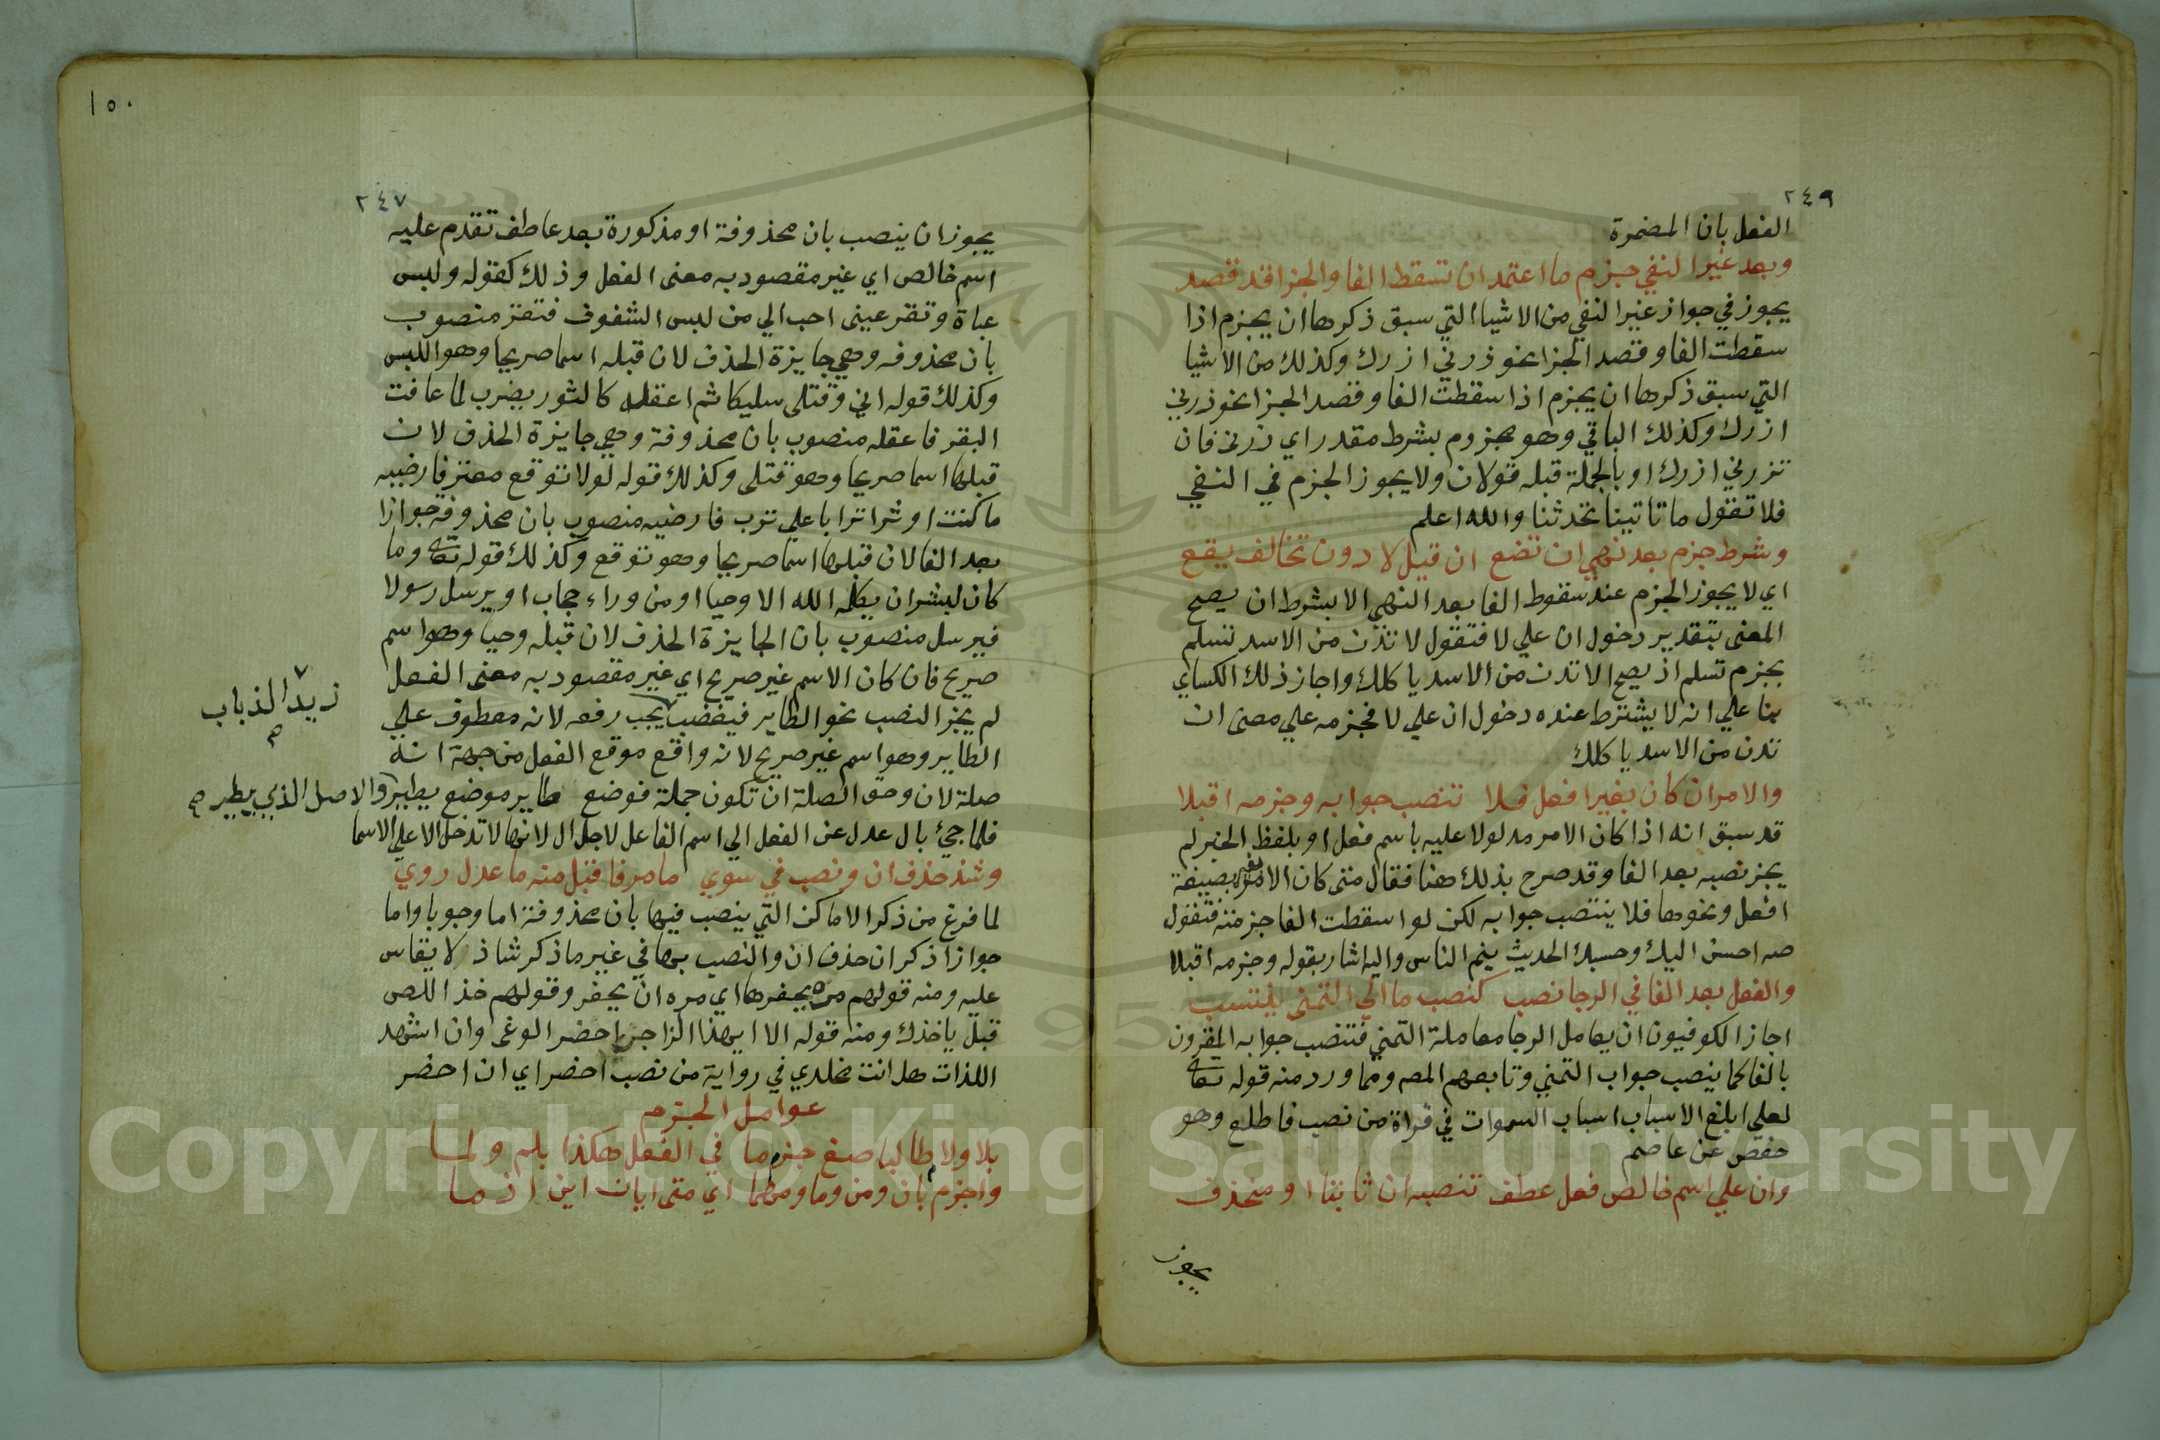 ٢٤٩
الفعل بان المضمرة
وبعد غير النفي جزم ما اعتمد ان تسقط الفا والجزا قد قصد
يجوز في جواز غير النفي من الاشيا التي سبق ذكرها ان يجزم اذا
سقطت الفا وقصد الجزا نحو ذرني ازرك وكذلك من الاشيا
التي سبق ذكرها ان يجزم اذا سقطت الفا وقصد الجزا نحو ذرني
ازرك وكذلك الباقي وهو مجزوم بشرط مقدر اي زرني فان
تزرني ازرك او بالجملة قبله قولان ولا يجوز الجزم في النفي
فلا تقول ما تاتينا تحدثنا والله اعلم
وشرط جزم بعد نهي ان تضع ان قبل لا دون تخالف يقع
اي لا يجوز الجزم عند سقوط الفا بعد النهي الا بشرط ان يصح
المعنى بتقدير دخول ان علي لا فتقول لا تدن من الاسد تسلم
بجزم تسلم اذ يصح الا تدن من الاسد ياكلك واجاز ذلك الكساي
بنا علي انه لا يشترط عنده دخول ان علي لا فجزمه علي معنى ان
تدن من الاسد ياكلك
والامر ان كان بغير افعل فلا تنصب جوابه وجزمه اقبلا
قد سبق انه اذا كان الامر مدلولا عليه باسم فعل او بلفظ الخبر لم
يجز نصبه بعد الفا وقد صرح بذلك هنا فقال متى كان الامر بغير صيغة
افعل ونحوها فلا ينتصب جوابه لكن لو اسقطت الفا جزمته فتقول
صه احسن اليك وحسبك الحديث ينم الناس واليه اشار بقوله وجزمه اقبلا
والفعل بعد الفا في الرجا نصب كنصب ما الي التمني ينتسب
اجاز الكوفيون ان يعامل الرجا معاملة التمني فتنصب جوابه المقرون
بالفا كما ينصب جواب التمني وتابعهم المص ومما ورد منه قوله تعا
لعلي ابلغ الاسباب اسباب السموات في قراة من نصب فاطلع وهو
حفص عن عاصم
وان علي اسم خالص فعل عطف تنصبه ان ثابتا او منحذف
يجوز
١٥٠
٢٤٧
يجوز ان ينصب بان محذوفة او مذكورة بعد عاطف تقدم عليه
اسم خالص اي غير مقصود به معنى الفعل وذلك كقوله ولبس
عباة وتقر عينى احب الي من لبس الشفوف فتقر منصوب
بان محذوفه وهي جايزة الحذف لان قبله اسما صريحا وهو اللبس
وكذلك قوله اني وقتلى سليكا ثم اعقله كالثور يضرب لما عافت
البقر فاعقله منصوب بان محذوفة وهي جايزة الحذف لان
قبلها اسما صريحا وهو قتلى وكذلك قوله لولا توقع معتر فارضيه
ما كنت اوثر اترابا علي ترب فارضيه منصوب بان محذوفة جوازا
بعد الفا لان قبلها اسما صريحا وهو توقع وكذلك قوله تعا وما
كان لبشر ان يكلمه الله الا وحيا او من وراء حجاب او يرسل رسولا
فيرسل منصوب بان الجايزة الحذف لان قبله وحيا وهو اسم
صريح فان كان الاسم غير صريح اي غير مقصود به معنى الفعل
لم يجز النصب نحو الطاير فيغضب يجب رفعه لانه معطوف علي
زيد الذباب
الطاير وهو اسم غير صريح لانه واقع موقع الفعل من جهة انه
صلة لان وحق الصلة ان تكون جملة فوضع طاير موضع يطير والاصل الذي يطير
فلما جئ بال عدل عن الفعل الي اسم الفاعل لاجل ال لانها لا تدخل الا علي الاسما
وشذ حذف ان ونصب في سوي ما مر فاقبل منه ما عدل روي
لما فرغ من ذكر الاماكن التي ينصب فيها بان محذوفة اما وجوبا واما
جوازا ذكر ان حذف ان والنصب بها في غير ما ذكر شاذ لا يقاس
عليه ومنه قولهم مره يحفرها اي مره ان يحفر وقولهم خذ اللص
قبل ياخذك ومنه قوله الا ايهذا الزاجري احضر الوغى وان اشهد
اللذات هل انت مخلدي في رواية من نصب احضر اي ان احضر
عوامل الجزم
بلا ولام طالبا ضع جزما في الفعل هكذا بلم ولما
واجزم بان ومن وما ومهما اي متى ايان اين اذ ما